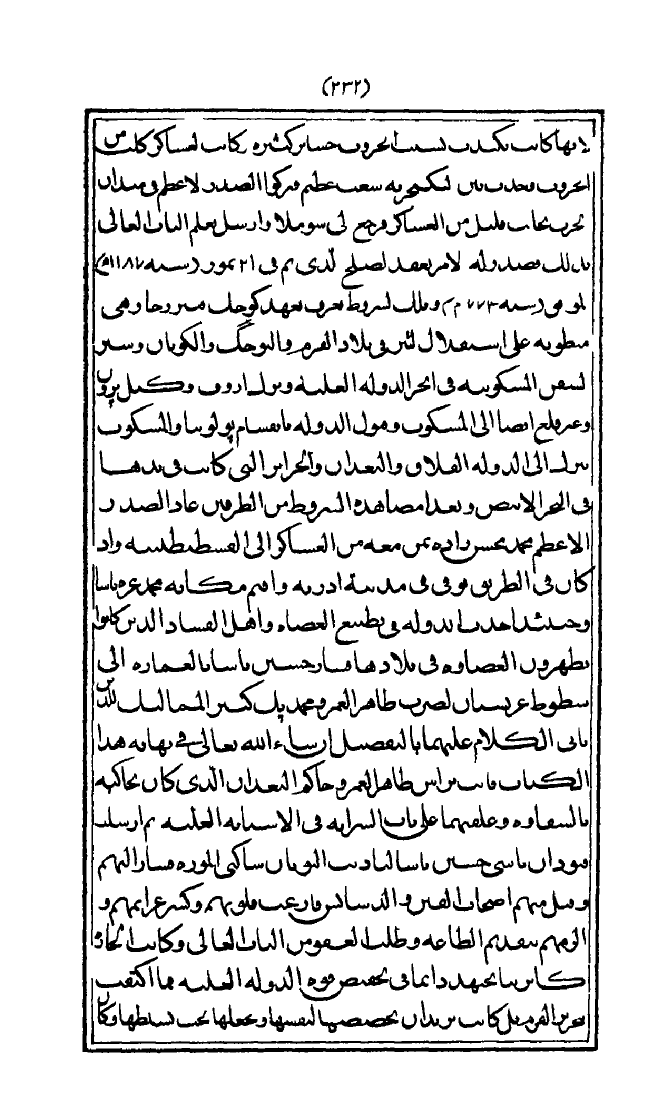 (٢٣٢)
لانها كانت تكبدت بسبب الحروب خساير كثيره وكانت العساكر كلت من
الحروب فحدث بين لنكيجريه شغب عظيم فتركوا الصدر الاعظم في ميدان
الحرب بجانب قليل من العساكر ورجع الى سوملا وارسل يعلم الباب العالي
بذلك فصدر له الامر بعقد الصلح الذي تم في ٢١ تموز (سنه ١١٨٧ﻫ)
(سنه ١٧٧٣م) وتلك الشروط تعرف بعهد كوچك قينرجا وهي
منطويه على استقلال التتر في بلاد القرم والبوجاق والكوبان وسير
السفن المسكوبيه في ابحر الدوله العليه وترك ازوف وكيل برون
وغير قلع ايضا الى المسكوب وقبول الدوله بانقسام پولونيا والمسكوب
تترك الى الدوله الفلاق والبغدان والجزاير التي كانت في يدها
في البحر الابيض وبعد امضا هذه الشروط من الطرفين عاد الصدر
الاعظم محمد محسن زاده بمن معه من العساكر الى القسطنطينيه واذ
كان في الطريق توفي في مدينة ادرنه واقيم مكانه محمد عزه باشا
وحينئذ اخذت الدوله في تطبيع العصاه واهل الفساد الذين كانوا
يظهرون العصاوه في بلادها فسار حسين باشا بالعماره الى
سطوط عربستان لضرب طاهر العمر ومحمد بك كبير المماليك الذين
ياتي الكلام عليهما بالتفصيل ان شاء الله تعالى في نهاية هذا
الكتاب فاتت براس طاهر العمر وحاكم البغدان الذي كان يحاكيه
بالشقاوه وعلقهما على باب السرايه في الاستانه العليه ثم ارسلت
قبودان باشي حسين باشا لتاديب اليونان ساكني الموره فسار اليهم
وقتل منهم اصحاب الفتن والدسائس فارعب قلوبهم وكسر عزايمهم و
الزمهم بتقديم الطاعه وطلب العفو من الباب العالي وكانت
كاترينا تجتهد دائما في تخفيض قوه الدوله العليه فما اكتفت
بتحرير القرم بل كانت تريد ان تخصصها لنفسها وتجعلها تحت تسلطها وكان